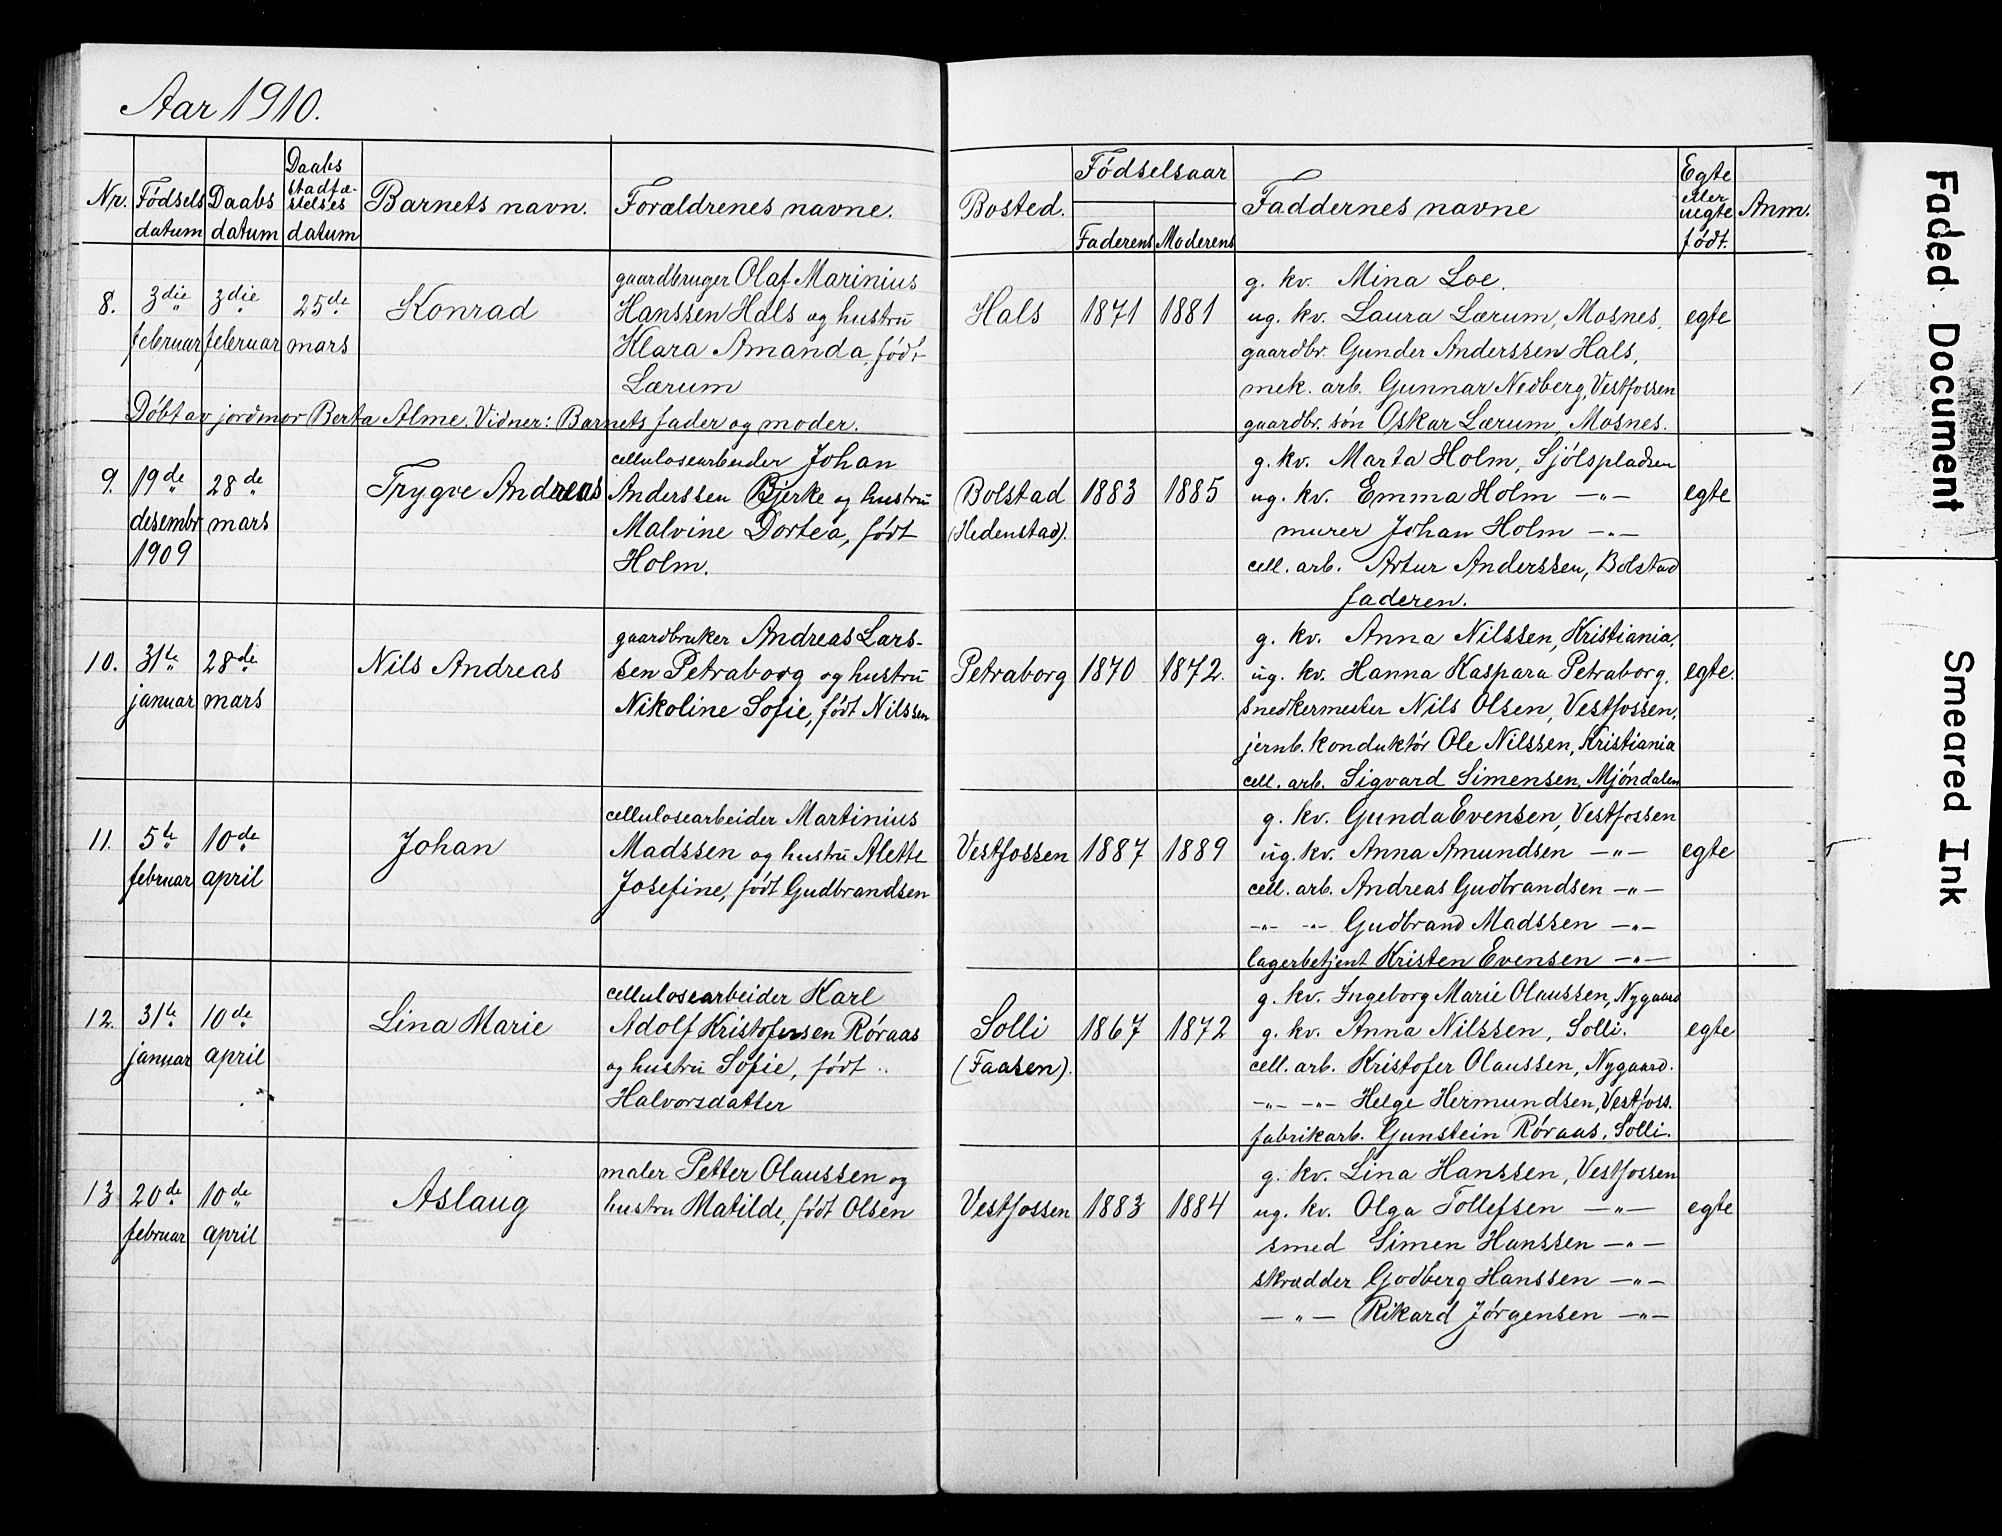 Aar 1910.
Nr. Fødsels datum Daabs datum Daabs stadfæ-stelses datum Barnets navn. Forældrenes navne. Bosted. Fødselsaar Faderens Moderens Faddernes navne Egte eller uegte født. Anm.
8. 3die februar 3die februar 25de mars Konrad
gaardbruger Olaf Marinius
Hanssen Hals og hustru
Klara Amanda, født
Lærum
Døbt av jordmor Berta Alme. Vidner: Barnets fader og moder.
Hals 1871 1881
g. kv. Mina Loe.
ug. kv. Laura Lærum, Mosnes,
gaardbr. Gunder Anderssen Hals,
mek. arb. Gunnar Nedberg, Vestfossen
gaardbr. søn Oskar Lærum, Mosnes.
egte
9. 19de desembr 1909 28de mars Trygve Andreas
cellulosearbeider Johan
Anderssen Bjerke og hustru
Malvine Dortea, født
Holm.
Bolstad (Hedenstad). 1883 1885
g. kv. Marta Holm, Sjølspladsen
ug. kv. Emma Holm —"—
murer Johan Holm —"—
cell. arb. Artur Anderssen, Bolstad
faderen.
egte
10. 31te januar 28de mars Nils Andreas
gaardbruker Andreas Lars-
sen Petraborg og hustru
Nikoline Sofie, født Nilssen
Petraborg 1870 1872.
g. kv. Anna Nilssen, Kristiania,
ug. kv. Hanna Kaspara Petraborg,
snedkermester Nils Olsen, Vestfossen,
jernb. konduktør Ole Nilssen, Kristiania
cell. arb. Sigvard Simensen, Mjøndalen
egte.
11. 5te februar 10de april Johan
cellulosearbeider Martinius
Madssen og hustru Alette
Josefine, født Gudbrandsen
Vestfossen 1887 1889
g. kv. Gunda Evensen, Vestfossen
ug. kv. Anna Amundsen —"—
cell. arb. Andreas Gudbrandsen —"—
—"— —"— Gudbrand Madssen —"—
lagerbetjent Kristen Evensen —"—
egte
12. 31te januar 10de april Lina Marie
cellulosearbeider Karl
Adolf Kristofersen Røraas
og hustru Sofie, født
Halvorsdatter
Solli (Faasen). 1867 1872
g. kv. Ingeborg Marie Olaussen, Nygaard
g. kv. Anna Nilssen, Solli.
cell. arb. Kristofer Olaussen, Nygaard.
—"— —"— Helge Hermundsen, Vestfoss.
fabrikarb. Gunstein Røraas, Solli.
egte
13 20de februar 10de april Aslaug
maler Petter Olaussen og
hustru Matilde, født Olsen
Vestfossen 1883 1884
g. kv. Lina Hanssen, Vestfossen
ug. kv. Olga Tollefsen —"—
smed Simen Hanssen —"—
skrædder Godberg Hanssen —"—
—"— Rikard Jørgensen —"—
egte
Faded Document
Smeared Ink